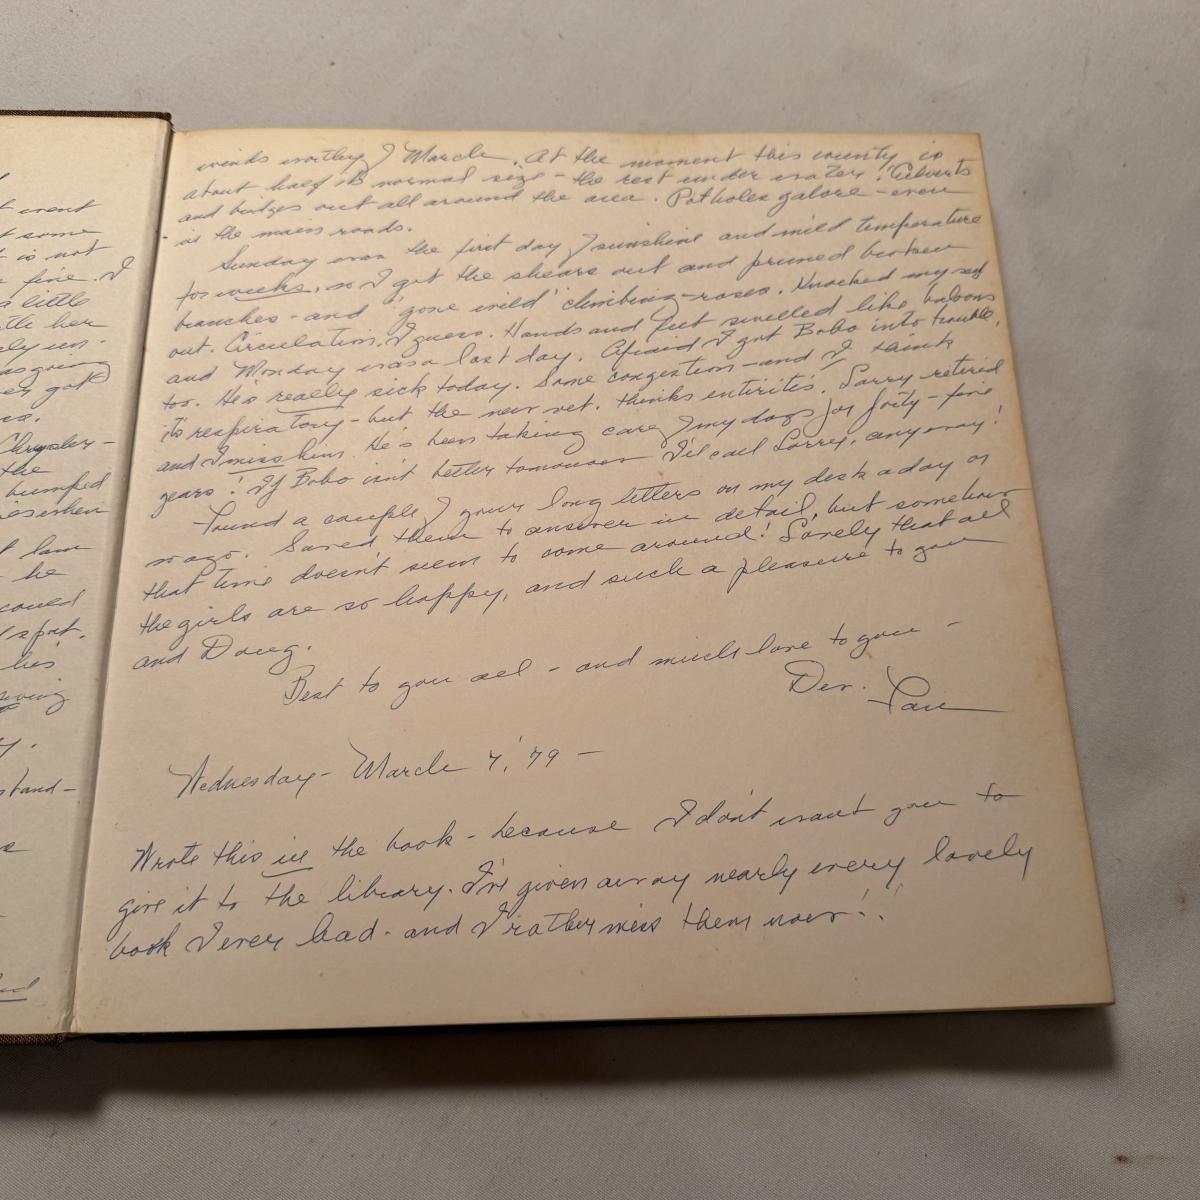 t went
t some
t is not
fine. I
s little
tle her
ly un-
as going
er got
Chrysler -
the
bumped
t I am
he
could
spot.
his
giving
y.
stand -
winds worthy of March. At the moment this county is
about half its normal size - the rest under water! Culverts
and bridges out all around the area. Potholes galore - even
in the main roads.
Sunday was the first day of sunshine and mild temperature
for weeks, so I got the shears out and pruned broken
branches - and 'gone wild' climbing-roses. Knocked myself
out. Circulation, I guess. Hands and feet swelled like baloons
and Monday was a lost day. Afraid I got Bobo into trouble,
too. He's really sick today. Some congestion - and I think
it's respiratory - but the new vet. thinks entiritis. Larry retired
and I miss him. He's been taking care of my dogs for forty-five
years! If Bobo isn't better tomorrow I'll call Larry, anyway!
Found a couple of your long letters on my desk a day or
so ago. Saved them to answer in detail, but somehow
that time doesn't seem to come around! Lovely that all
the girls are so happy, and such a pleasure to you
and Doug.
Best to you all - and much love to you -
Dev.
Wednesday - March 7, '79 -
Wrote this in the book - because I don't want you to
give it to the library. I've given away nearly every lovely
book I ever had - and I rather miss them now!!